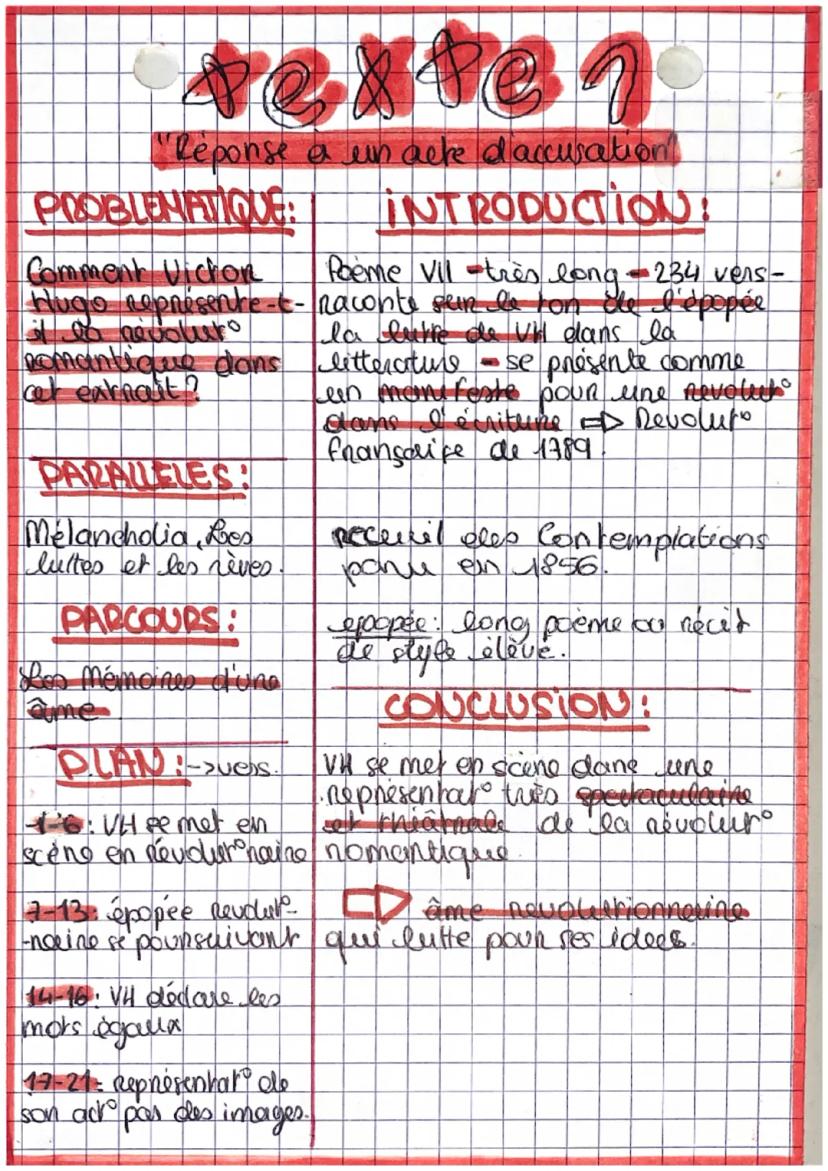 texte 1
"Réponse à un acte d'accusation"
PROBLEMATIQUE:
Comment Victor
Hugo représente-t-
il la révolut°
romantique dans
cet extrait ?
PARALLELES:
Mélancholia, Les
luttes et les rêves.
PARCOURS:
Les Mémoires d'une
âme
PLAN: -> vers.
1-6: VH se met en
scène en révolut°naire
7-13: épopée revolut°-
-naire se poursuivant
14-16: VH déclare les
mots égaux
17-21: représentat° de
son act° pas des images.
INTRODUCTION:
Poème VII - très long - 234 vers -
raconte sur le ton de l'épopée
la lutte de VH dans la
litterature - se présente comme
un manifeste pour une revolut°
dans l'écriture ⇨ Revolut°
française de 1789.
receuil des Contemplations
paru en 1856.
epopée: long poème ou récit
de style élevé.
CONCLUSION:
VH se met en scène dans une
représentat° très spectaculaire
et théâtrale de la révolut°
romantique.
⇨ âme revolutrionnaire
qui lutte pour ses idees.